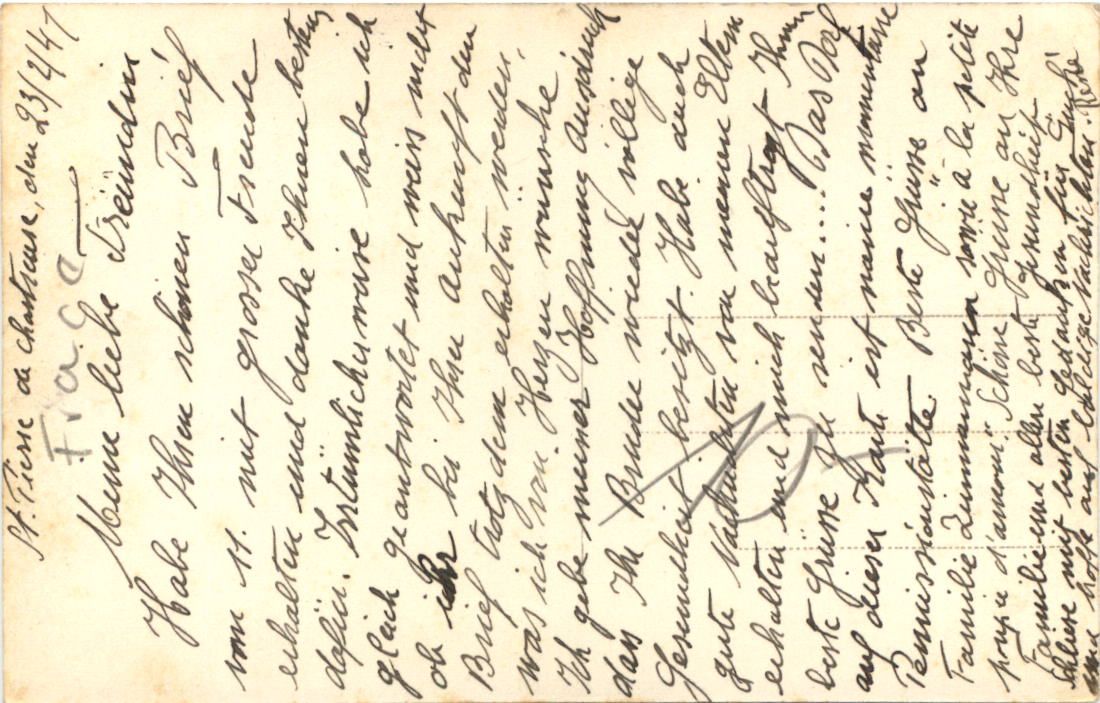 St. Pierre de chartreuse, den 23/2/41
Meine liebe Freundin
Habe Ihren schönen Brief
vom 11. mit grosser Freude
erhalten und danke Ihnen bestens
dafür. Irrtümlicherweise habe ich
gleich geantwortet und weis nicht
ob ihr bei Ihre ankunft den
Brief trotzdem erhalten werden,
was ich von Herzen wünsche
Ich gebe meiner Hoffnung Ausdruck
das Ihr Bruder wieder völlige
Gesundheit besitzt. Habe auch
gute Nachrichten von meinen Eltern
erhalten und mich beauftragt Ihnen
beste Grüsse zu senden.... Das Dorf
auf dieser Karte ist meine momentane
Permissionstätte. Beste Grüsse an
Familie Zimmermann sowie à la petite
d'amour. Schöne Grüsse an Ihre
Familie und allen beste Gesundheit
Schliese mit besten Gedanken für
und hoffe auf baldige Nachrichten. René
Fr a. c a
10 –